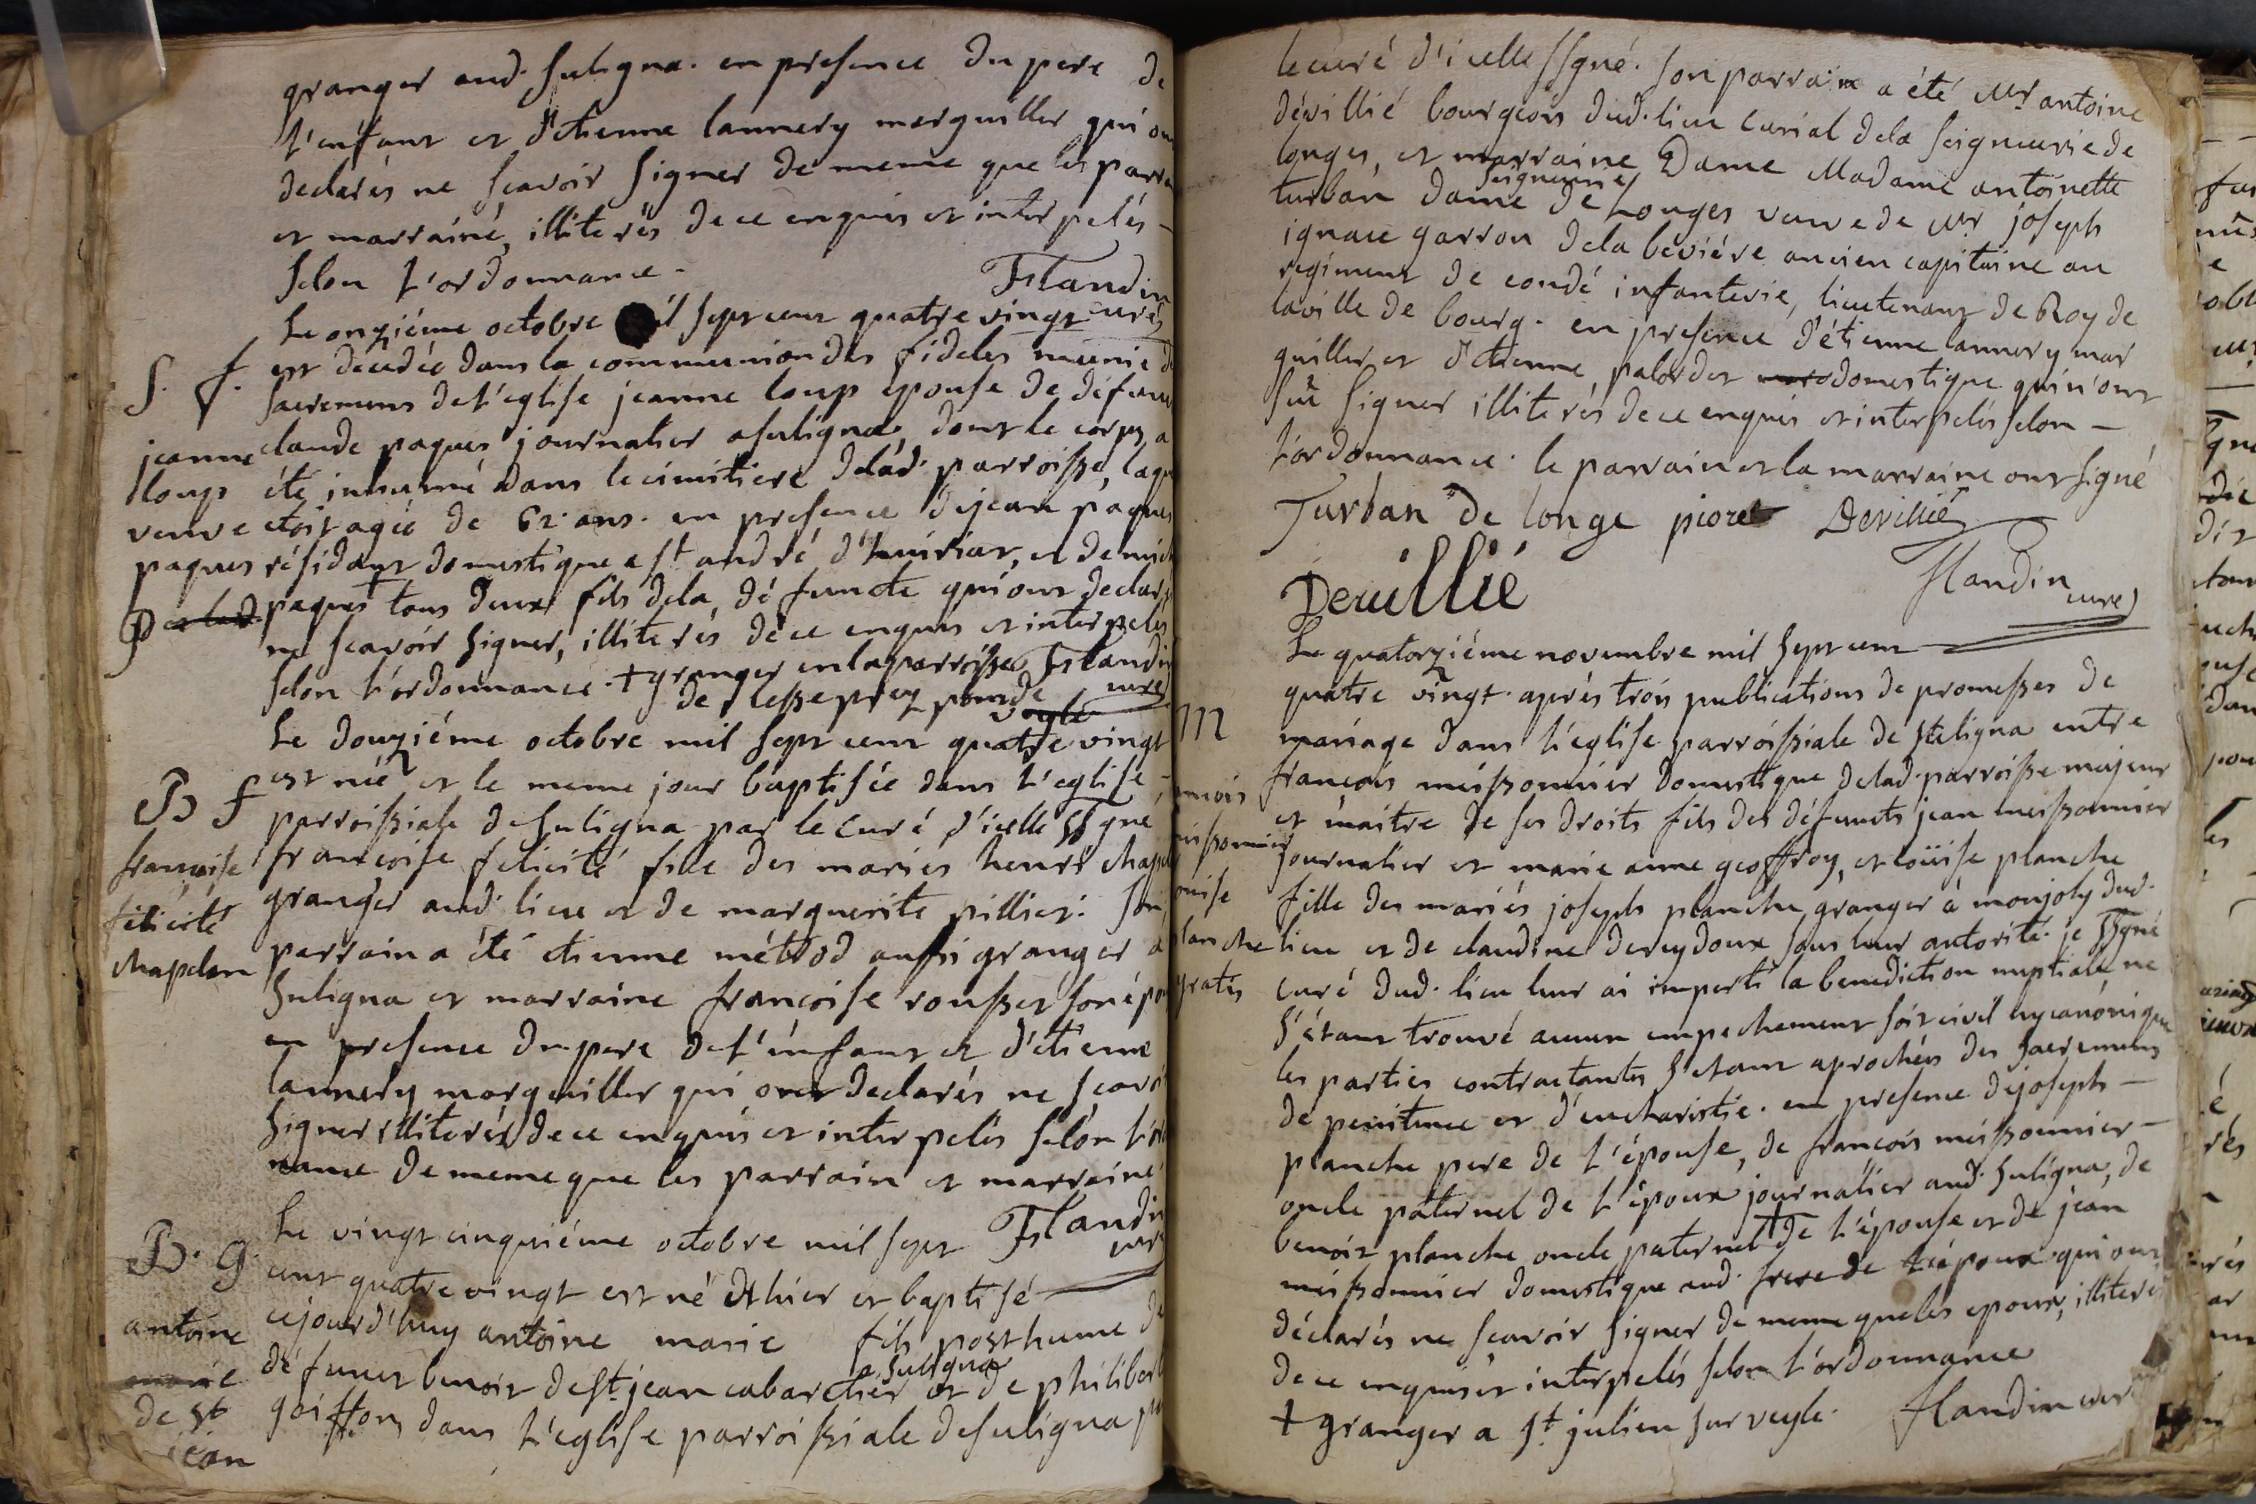 granger aud. suligna. en presence du pere de
l'enfant et d'etienne lannery marguiller qui
declarés ne scavoir signer de meme que les
et marrainé, illiterés de ce enquis et interpelés -
selon l'ordonnance.
Flandin
curé
Le onziéme octobre sept cent quatre vingt
S. f.
est decedée dans la communion des fideles munie
sacremens de l'eglise jeanne loup epouse de defunt
jeanne
claude paques journalier a suligna, dont le corps a
loup
été inhumé dans le cimitiere delad. parroisse,
veuve
etoit agée de 62. ans. en presence de jean paques
paques
résidant domestique a st andré d'huiriat, et de
paques tous deux fils dela défuncte qui ont
ne scavoir signer, illiterés de ce enquis et interpelés
selon l'ordonnance. + granger en la parroisse
Flandin
curé
Le douziéme octobre mil sept cent quatre vingt
B f
est née et le meme jour baptisée dans l'eglise -
parroissiale de suligna par le curé d'icelle ssgné
francoise
francoise felicité fille des mariés henri
felicité
granger aud. lieu et de marguerite pillier. son
chapelan
parrain a été etienne métrod aussi granger a
suligna et marraine francoise rousset son
en presence du pere de l'enfant et d'etienne
lannery marguiller qui ont declarés ne
signer illiterés de ce enquis et interpelés selon
nance de meme que les parrain et marraine
Flandin
curé
Le vingt cinquiéme octobre mil sept
B. g.
cent quatre vingt est né d'hier et baptisé
antoine
cejourd'huy antoine marie fils posthume de
marie
a suligna
défunct benoit de st. jean cabaretier et de
de st
goiffon, dans l'eglise parroissiale de suligna
jean
le curé d'icelle ssgné. son parrain a été mr. antoine
dévillié bourgeois dud. lieu curial dela seigneurie de
longes, et marraine Dame Madame antoinette
seigneurie
turban dame de Longes veuve de mr. joseph
ignace garron dela beviére ancien capitaine au
regiment de condé infanterie, lieutenant de Roy de
la ville de bourg. en presence d'étienne lannery mar
guiller, et d'etienne palordet domestique qui n'ont
scu signer illiterés de ce enquis et interpelés selon -
l'ordonnance. le parrain et la marraine ont signé
Turban de longe Devillié
Devillié
Flandin
curé
Le quatorziéme novembre mil sept cent
M
quatre vingt. aprés trois publications de promesses de
mariage dans l'eglise parroissiale de suligna entre
francois meissonnier domestique delad. parroisse majeur
et maitre de ses droits fils des défuncts jean meissonnier
journalier et marie anne geoffroy, et loüise planche
fille des mariés joseph planche granger à monjoly dud.
planche
lieu et de claudine dereydoux sous leur autorité. je ssgné
gratis
curé dud. lieu leur ai imparti la benediction nuptiale ne
s'étant trouvé aucun empechement soit civil ny canónique
les parties contractantes s'etant aprochées des sacremens
de penitence et d'eucharistie. en presence de joseph -
planche pere de l'épouse, de francois meissonnier -
oncle paternel de l'époux journalier aud. suligna, de
benoit planche oncle paternel + de l'épouse et de jean
meissonnier domestique aud. frere de l'époux. qui ont
déclarés ne scavoir signer de meme que les epoux, illiterés
de ce enquis et interpelés selon l'ordonnance
+ granger a st. julien sur veyle. Flandin curé